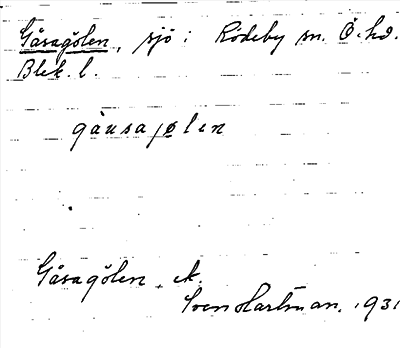 Gåsagölen, sjö i Rödeby sn. Ö. hd.
Blek. l.
gåusajølen
Gåsagölen, ek.
Sven Hartman. 1931